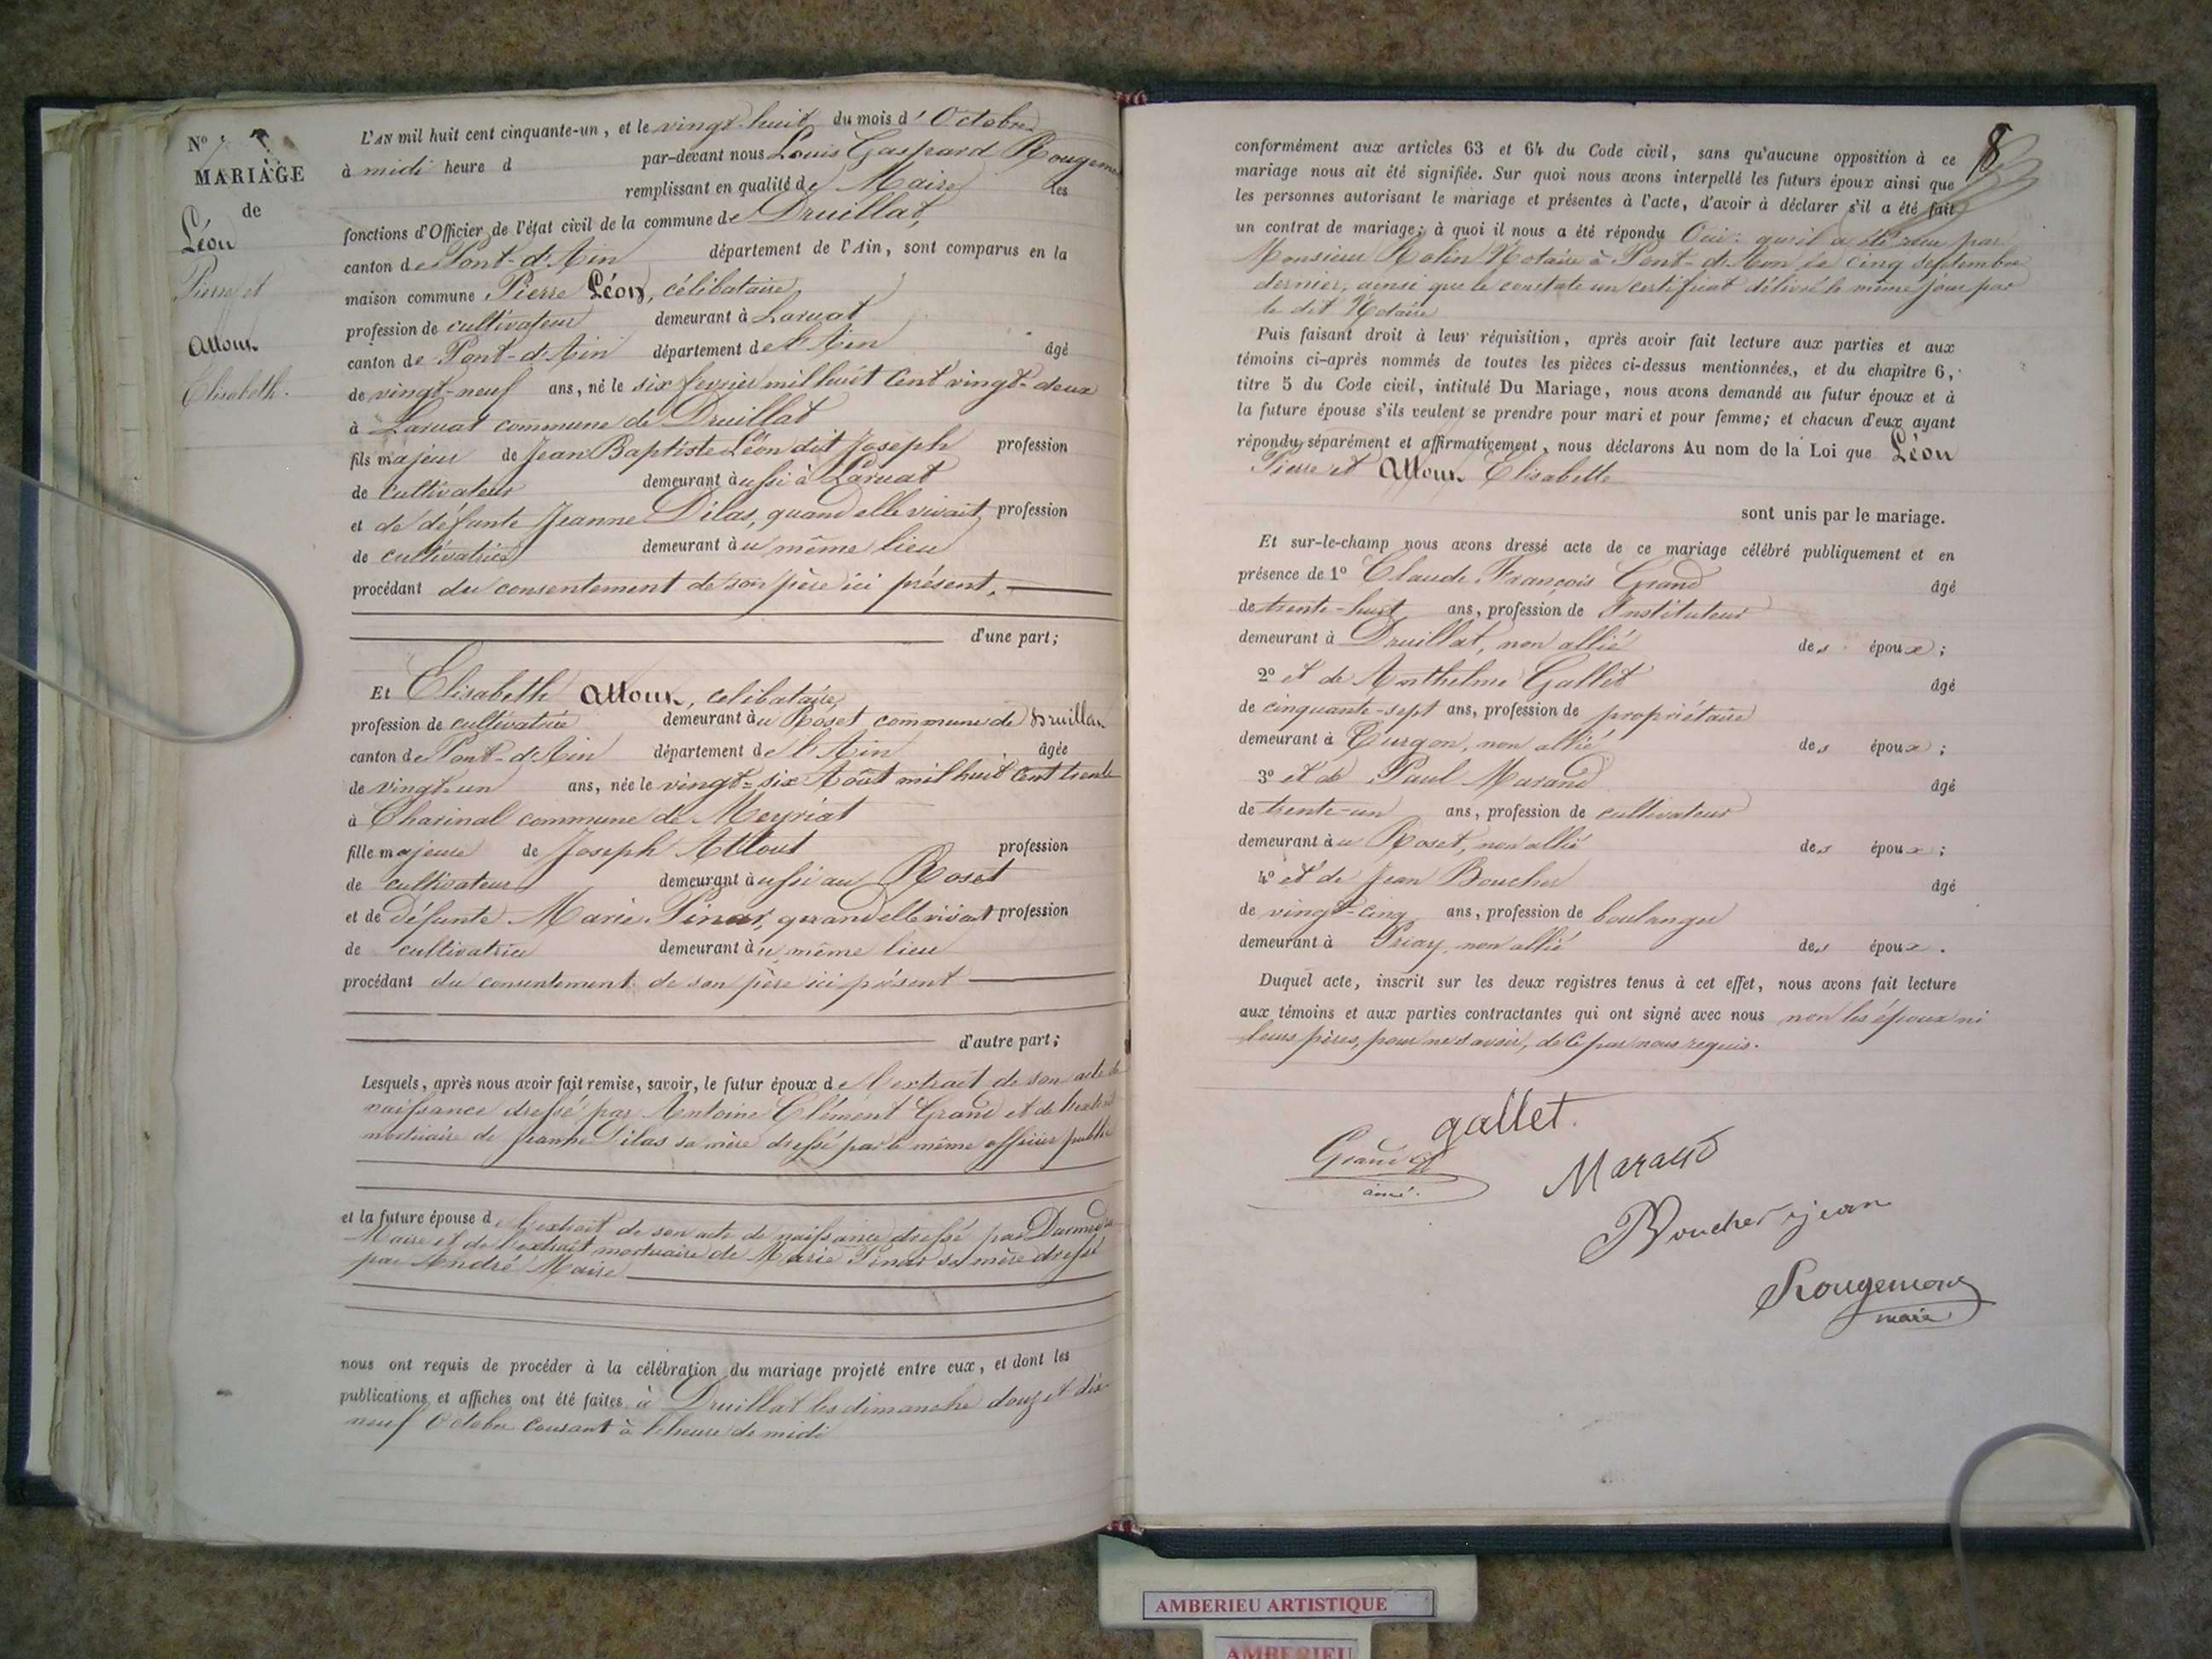 Nº 7
MARIAGE
de
Léon
Pierre et
Alloux
Elisabeth.
L'AN mil huit cent cinquante-un, et le vingt-huit du mois d'Octobre
à midi heure d par-devant nous Louis Gaspard Rougemont
remplissant en qualité de Maire les
fonctions d'Officier de l'état civil de la commune de Druillat,
canton de Pont-d'Ain département de l'Ain, sont comparus en la
maison commune Pierre Léon, célibataire,
profession de cultivateur demeurant à Laruat
canton de Pont-d'Ain département de l'Ain âgé
de vingt-neuf ans, né le six fevrier mil huit cent vingt-deux
à Laruat commune de Druillat
fils majeur de Jean Baptiste Léon dit Joseph profession
de cultivateur demeurant aussi à Laruat
et de défunte Jeanne Dilas, quand elle vivait profession
de cultivatrice demeurant au même lieu
procédant du consentement de son père ici présent.
d'une part;
Et Elisabeth Alloux, celibataire,
profession de cultivatrice demeurant au Roset commune de Druillat
canton de Pont-d'Ain département de l'Ain âgée
de vingt-un ans, née le vingt-six Août mil huit cent trente
à Charinal commune de Meyriat
fille majeure de Joseph Alloux profession
de cultivateur demeurant aussi au Roset
et de défunte Marie Pinar, quand elle vivait profession
de cultivatrice demeurant au même lieu
procédant du consentement de son père ici présent
d'autre part;
Lesquels, après nous avoir fait remise, savoir, le futur époux de l'extrait de son acte de
naissance dressé par Antoine Clément Grand et de l'extrait
mortuaire de Jeanne Dilas sa mère dressé par le même officier public
et la future épouse de l'extrait de son acte de naissance dressé par
Maire et de l'extrait mortuaire de Marie Pinar sa mère dressé
par André Maire
nous ont requis de procéder à la célébration du mariage projeté entre eux, et dont les
publications et affiches ont été faites à Druillat les dimanche douze et dix
neuf Octobre courant à l'heure de midi
8
conformément aux articles 63 et 64 du Code civil, sans qu'aucune opposition à ce
mariage nous ait été signifiée. Sur quoi nous avons interpellé les futurs époux ainsi que
les personnes autorisant le mariage et présentes à l'acte, d'avoir à déclarer s'il a été fait
un contrat de mariage; à quoi il nous a été répondu Oui: qu'il a été reçu par
Monsieur Notaire à Pont-d'Ain le cinq septembre
dernier, ainsi que le constate un certificat délivré le même jour par
le dit Notaire
Puis faisant droit à leur réquisition, après avoir fait lecture aux parties et aux
témoins ci-après nommés de toutes les pièces ci-dessus mentionnées, et du chapitre 6,
titre 5 du Code civil, intitulé Du Mariage, nous avons demandé au futur époux et à
la future épouse s'ils veulent se prendre pour mari et pour femme; et chacun d'eux ayant
répondu séparément et affirmativement, nous déclarons Au nom de la Loi que Léon
Pierre et Alloux Elisabette
sont unis par le mariage.
Et sur-le-champ nous avons dressé acte de ce mariage célébré publiquement et en
présence de 1º Claude François Grand âgé
de trente-huit ans, profession de Instituteur
demeurant à Druillat, non allié des époux;
2º et de Anthelme Gallet âgé
de cinquante-sept ans, profession de propriétaire
demeurant à Turgon, non allié des époux;
3º et de Paul Marand âgé
de trente-un ans, profession de cultivateur
demeurant au Roset, non allié des époux;
4º et de Jean Boucher âgé
de vingt-cinq ans, profession de boulanger
demeurant à Priay, non allié des époux.
Duquel acte, inscrit sur les deux registres tenus à cet effet, nous avons fait lecture
aux témoins et aux parties contractantes qui ont signé avec nous non les époux ni
leurs pères, pour ne savoir, de ce par nous requis.
gallet.
Grand
ainé.
Marand
Boucher jean
Rougemont
maire
AMBERIEU ARTISTIQUE
AMBERIEU